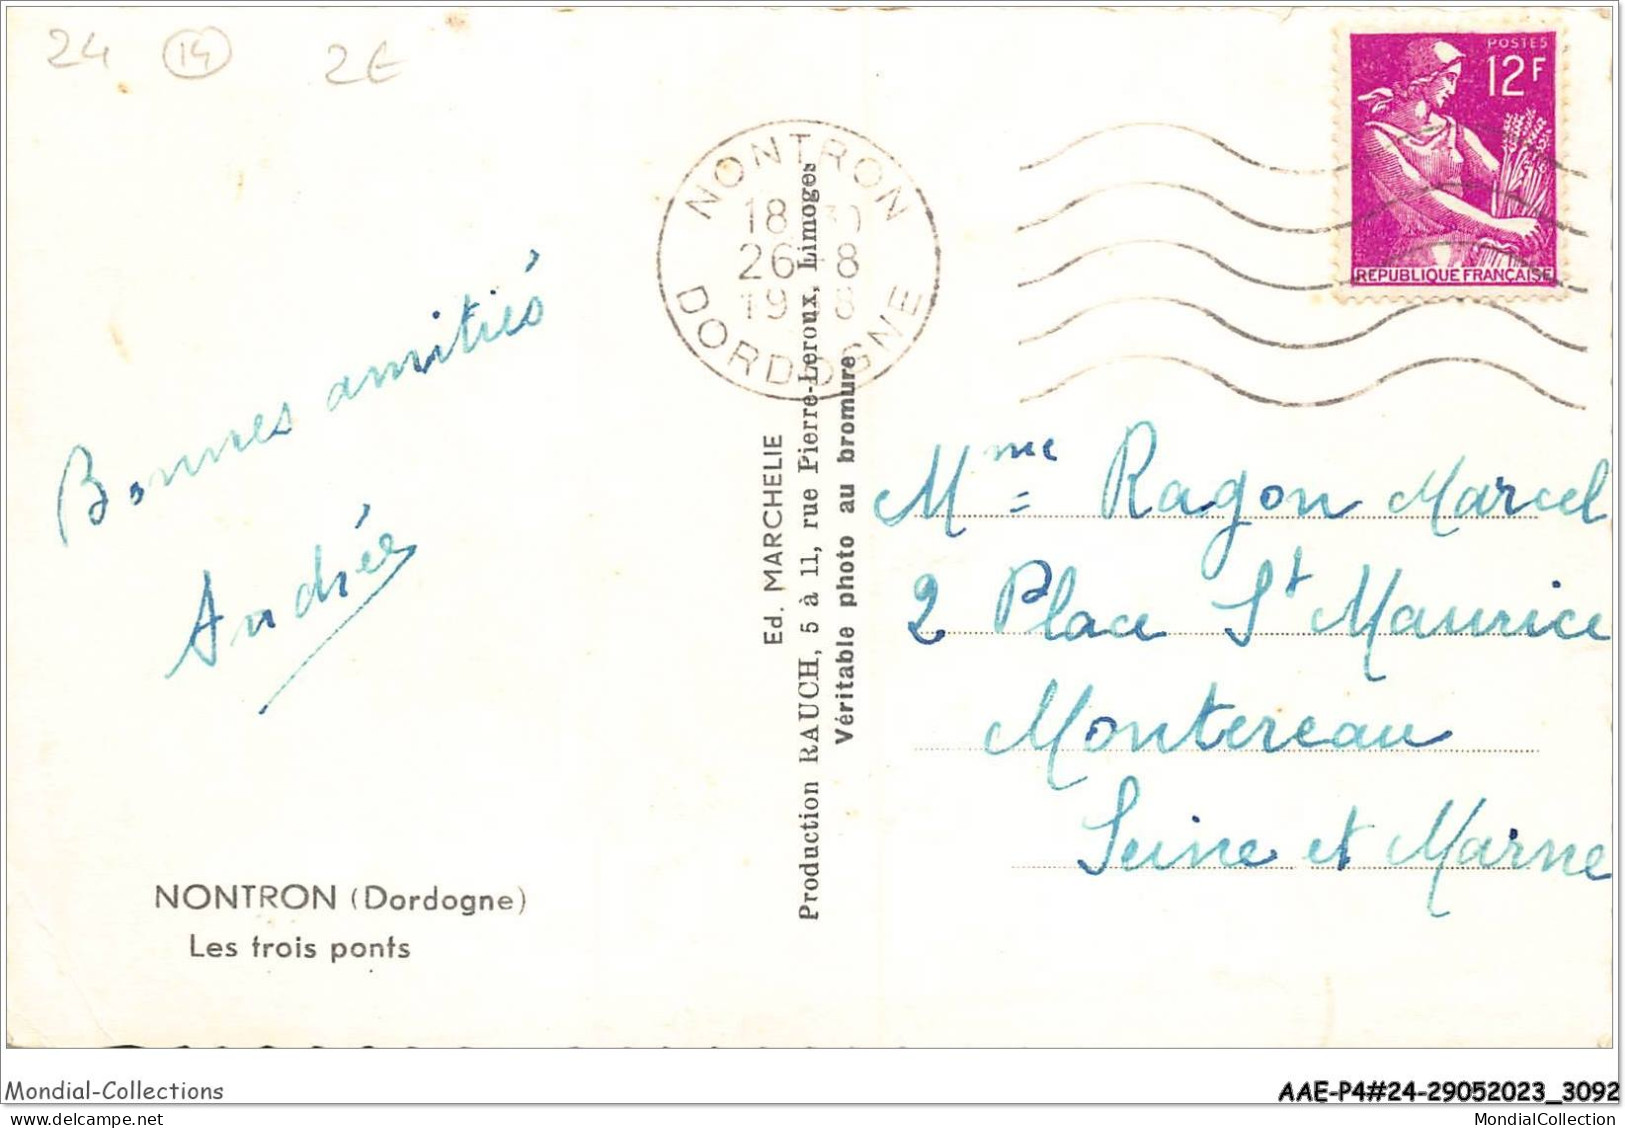 24 14 2€
POSTES
12F
REPUBLIQUE FRANÇAISE
NONTRON
26-8
DORDOGNE
Bonnes amitiés
Andrée
Ed. MARCHELIE
Production RAUCH, 5 à 11, rue Pierre-Leroux, Limoges
Véritable photo au bromure
Mme Ragon Marcel
2 Place St Maurice
Montereau
Seine et Marne
NONTRON (Dordogne)
Les trois ponts
Mondial-Collections
AAE-P4#24-29052023_3092
MondialCollection